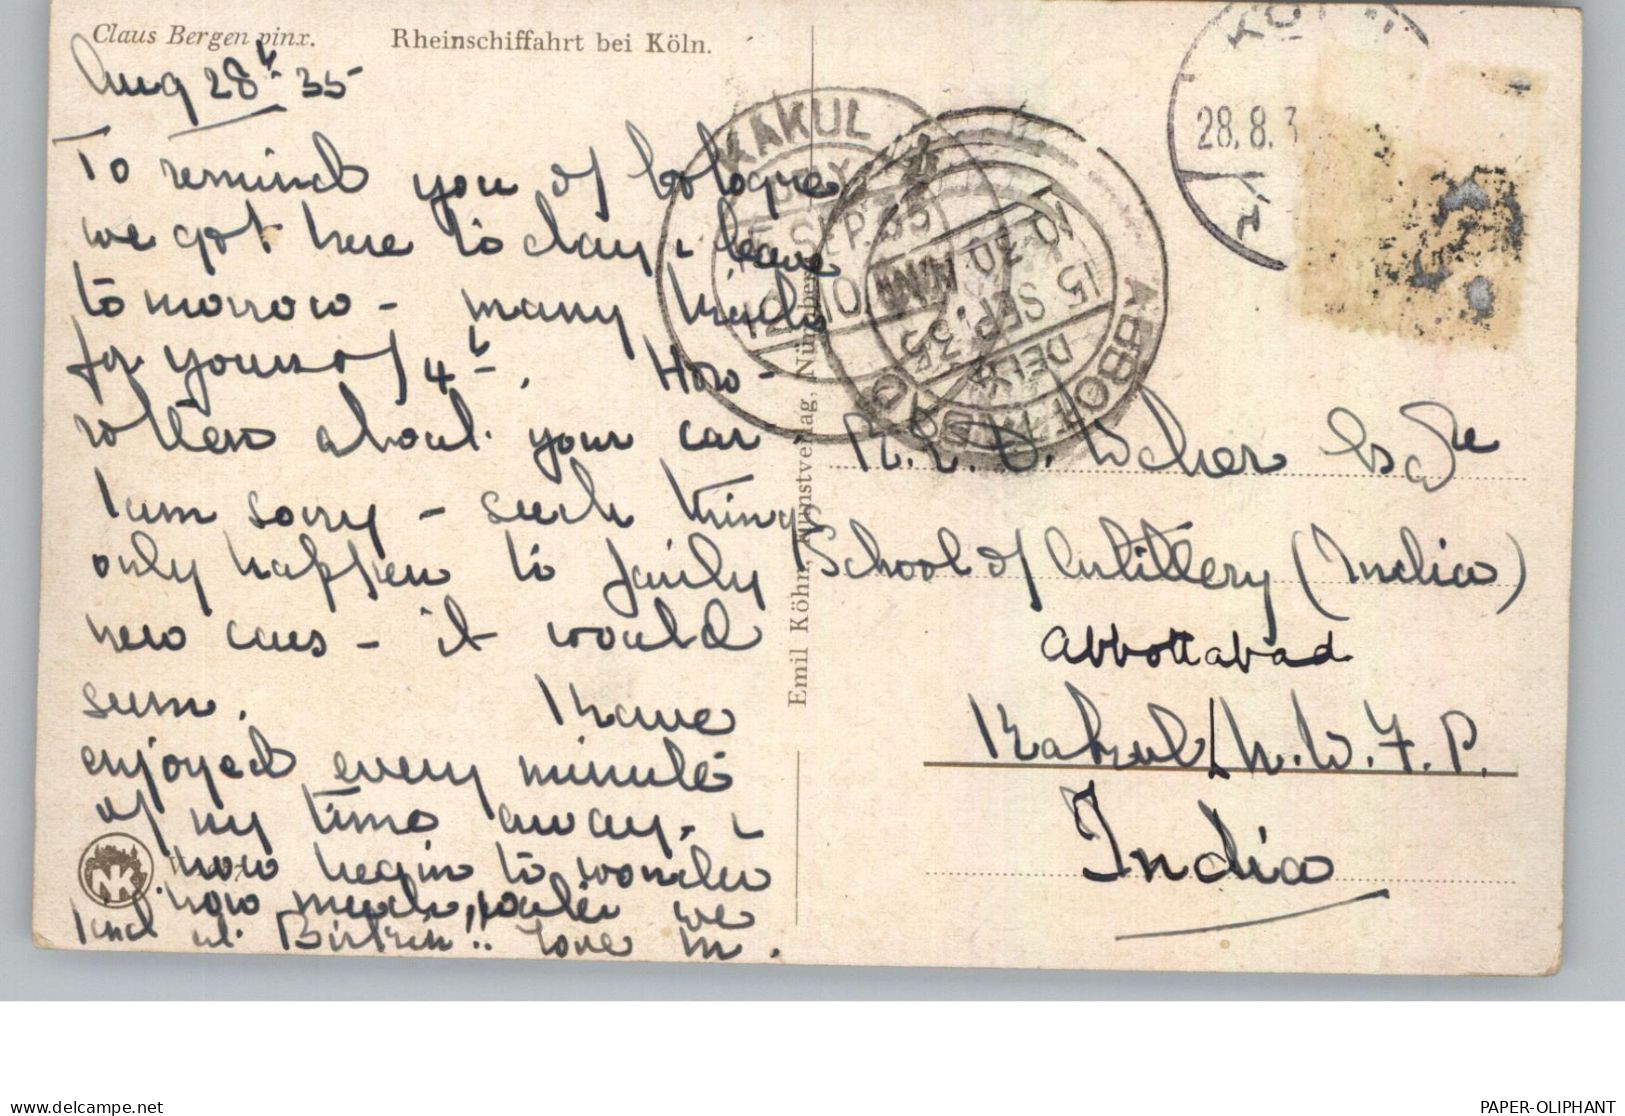 Claus Bergen pinx. Rheinschiffahrt bei Köln.
Aug 28th 35
To remind you of Cologne
we got here to day & leave
tomorrow - many thanks
for yours of 4th. How
rotten about your car
I am sorry - such things
only happen to fairly
new cars - it would
seem. I have
enjoyed every minute
of my time away - &
now begin to wonder
how much water we
find at Birken .. Love M.
Emil Köhn, Kunstverlag, Nürnberg
KAKUL
SEP. 35
12. 10
ABBOTTABAD
10.30
15 SEP. 35
DELY.
KÖLN
28.8.3
Esqre
School of Artillery (India)
Abbottabad
Kakul / N.W.F.P.
India
PAPER-OLIPHANT